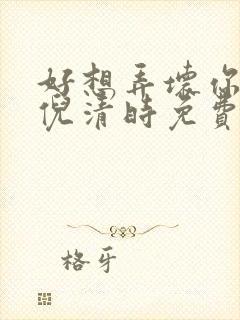 好想弄坏你
倪清时免費
格牙